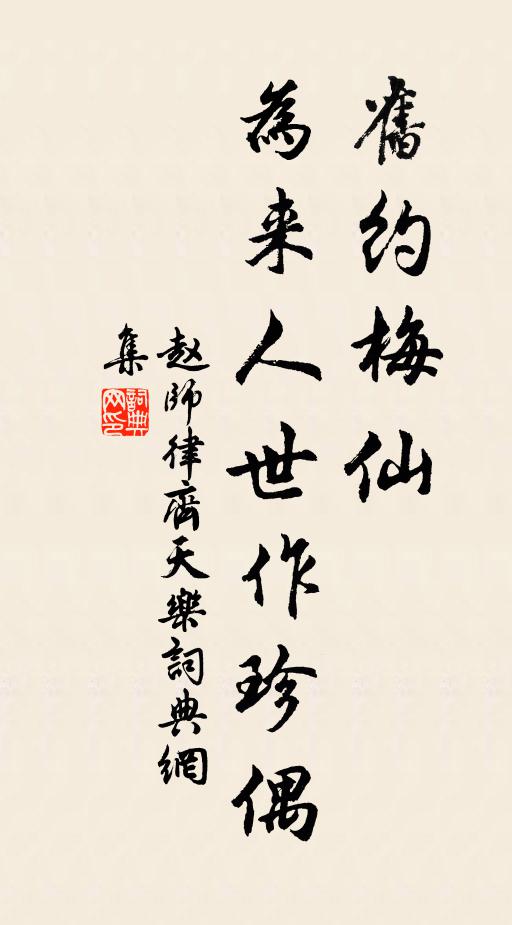 舊約梅仙
為来人世作珍偶
赵師律齊天樂詞典網
集
詞典
网印